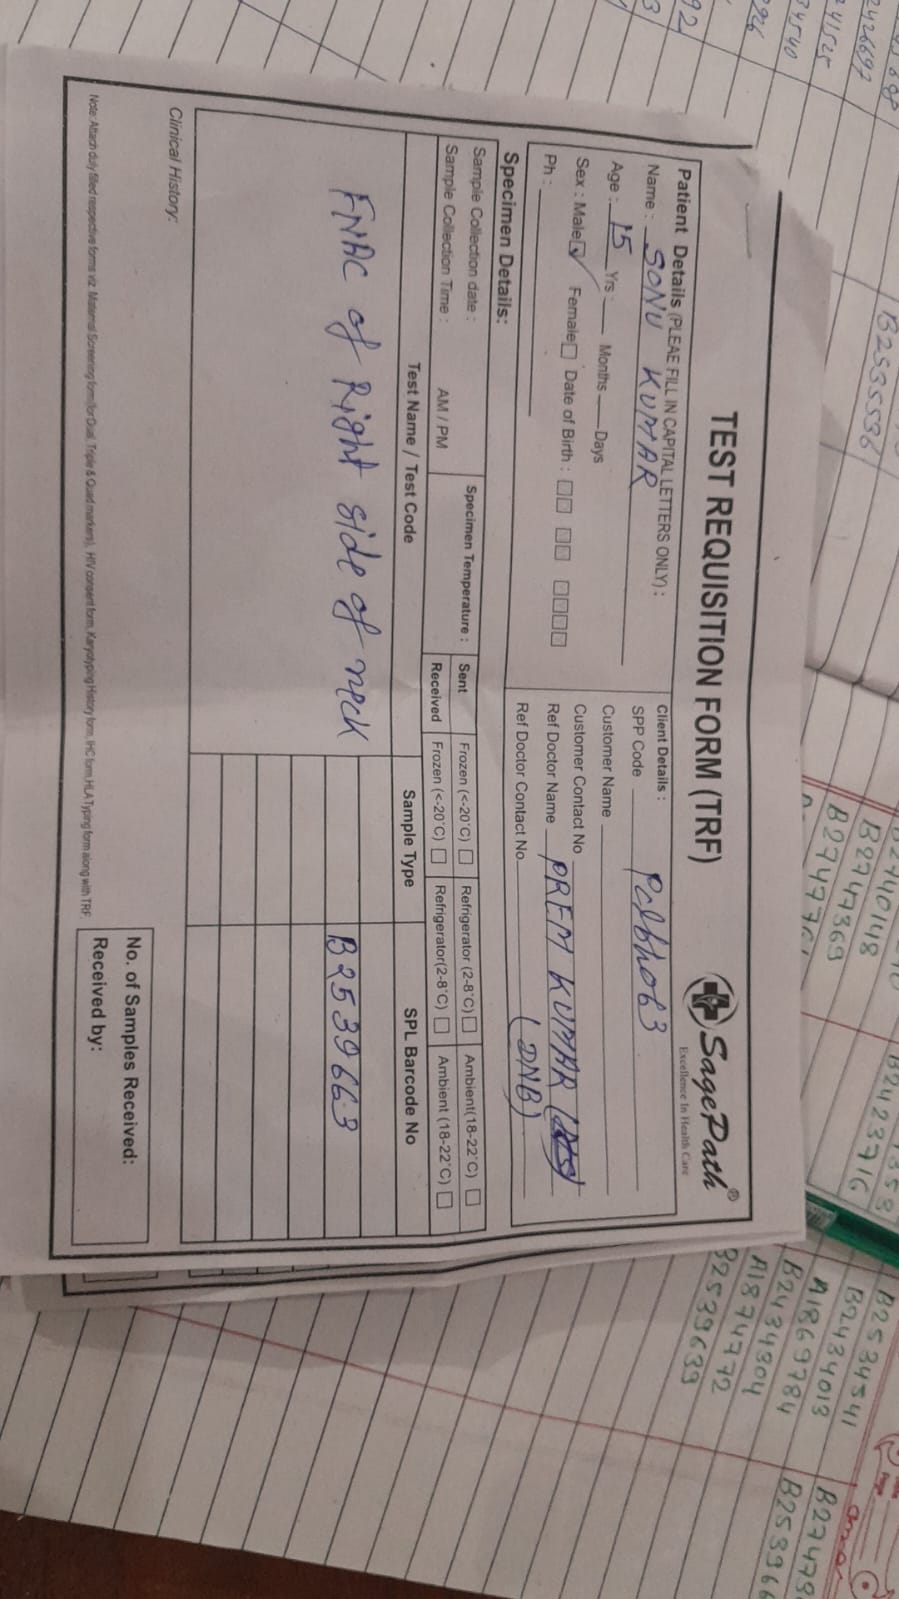 TEST REQUISITION FORM (TRF)
SagePath®
Excellence In Health Care
Patient Details (PLEAE FILL IN CAPITAL LETTERS ONLY) :
Name : SONU KUMAR
Age : 15 Yrs : Months Days
Sex : Male ☑ Female ☐ Date of Birth :
Ph :
Client Details :
SPP Code
Customer Name
Customer Contact No
Ref Doctor Name PREM KUMAR
(DNB)
Ref Doctor Contact No
Specimen Details:
Sample Collection date :
Sample Collection Time : AM / PM
Specimen Temperature : Sent Frozen (<-20°C) ☐ Refrigerator (2-8°C) ☐ Ambient(18-22°C) ☐
Received Frozen (<-20°C) ☐ Refrigerator(2-8°C) ☐ Ambient (18-22°C) ☐
Test Name / Test Code Sample Type SPL Barcode No
FNAC of Right side of neck B2539663
Clinical History:
No. of Samples Received:
Received by:
Note: Attach duly filled respective forms viz. Maternal Screening form(for Dual, Triple & Quad markers), HIV consent form, Karyotyping History form, IHC form, HLA Typing form along with TRF.
B2535536
B2740148
B2747369
B2423716
B2534541
B2434013
A1869784
B2434304
A1874772
B2539639